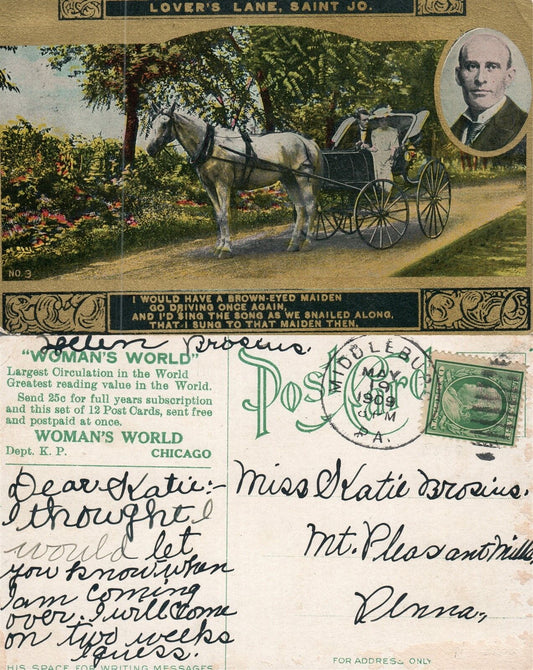 LOVER'S LANE, SAINT JO.
NO. 3
I WOULD HAVE A BROWN-EYED MAIDEN
GO DRIVING ONCE AGAIN,
AND I'D SING THE SONG AS WE SNAILED ALONG,
THAT I SUNG TO THAT MAIDEN THEN.
Hellen Brosius.
"WOMAN'S WORLD"
Largest Circulation in the World
Greatest reading value in the World.
Send 25c for full years subscription
and this set of 12 Post Cards, sent free
and postpaid at once.
WOMAN'S WORLD
Dept. K. P. CHICAGO
Post Card
MIDDLEBURG
MAY
19
1909
PM
PA.
Dear Katie:-
I thought I
would let
you know when
I am coming
over. I will come
on two weeks
I guess.
Miss Katie Brosius.
Mt. Pleasant Mills,
Penna.,
HIS SPACE FOR WRITING MESSAGES
FOR ADDRESS ONLY